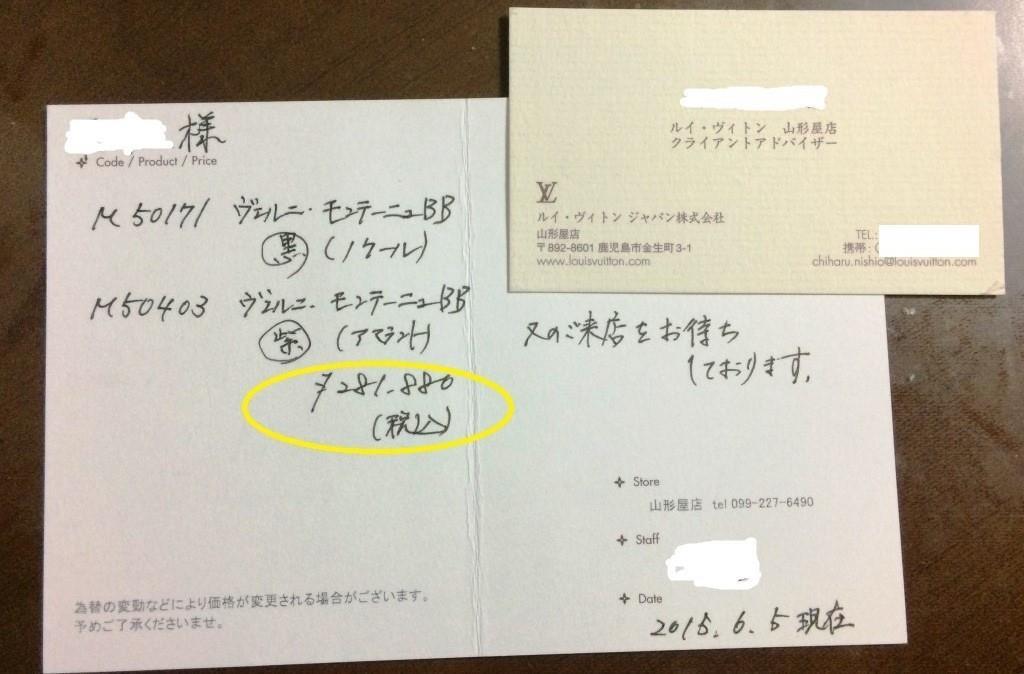 様
Code / Product / Price
M50171 ヴェルニ・モンテーニュBB
黒 (ノワール)
M50403 ヴェルニ・モンテーニュBB
紫 (アマラント)
¥281.880
(税込)
為替の変動などにより価格が変更される場合がございます。
予めご了承くださいませ。
又のご来店をお待ち
しております。
Store
山形屋店 tel 099-227-6490
Staff
Date
2015.6.5 現在
ルイ・ヴィトン 山形屋店
クライアントアドバイザー
LV
ルイ・ヴィトン ジャパン株式会社
山形屋店
〒892-8601 鹿児島市金生町3-1
www.louisvuitton.com
TEL:
携帯:
chiharu.nishio@louisvuitton.com